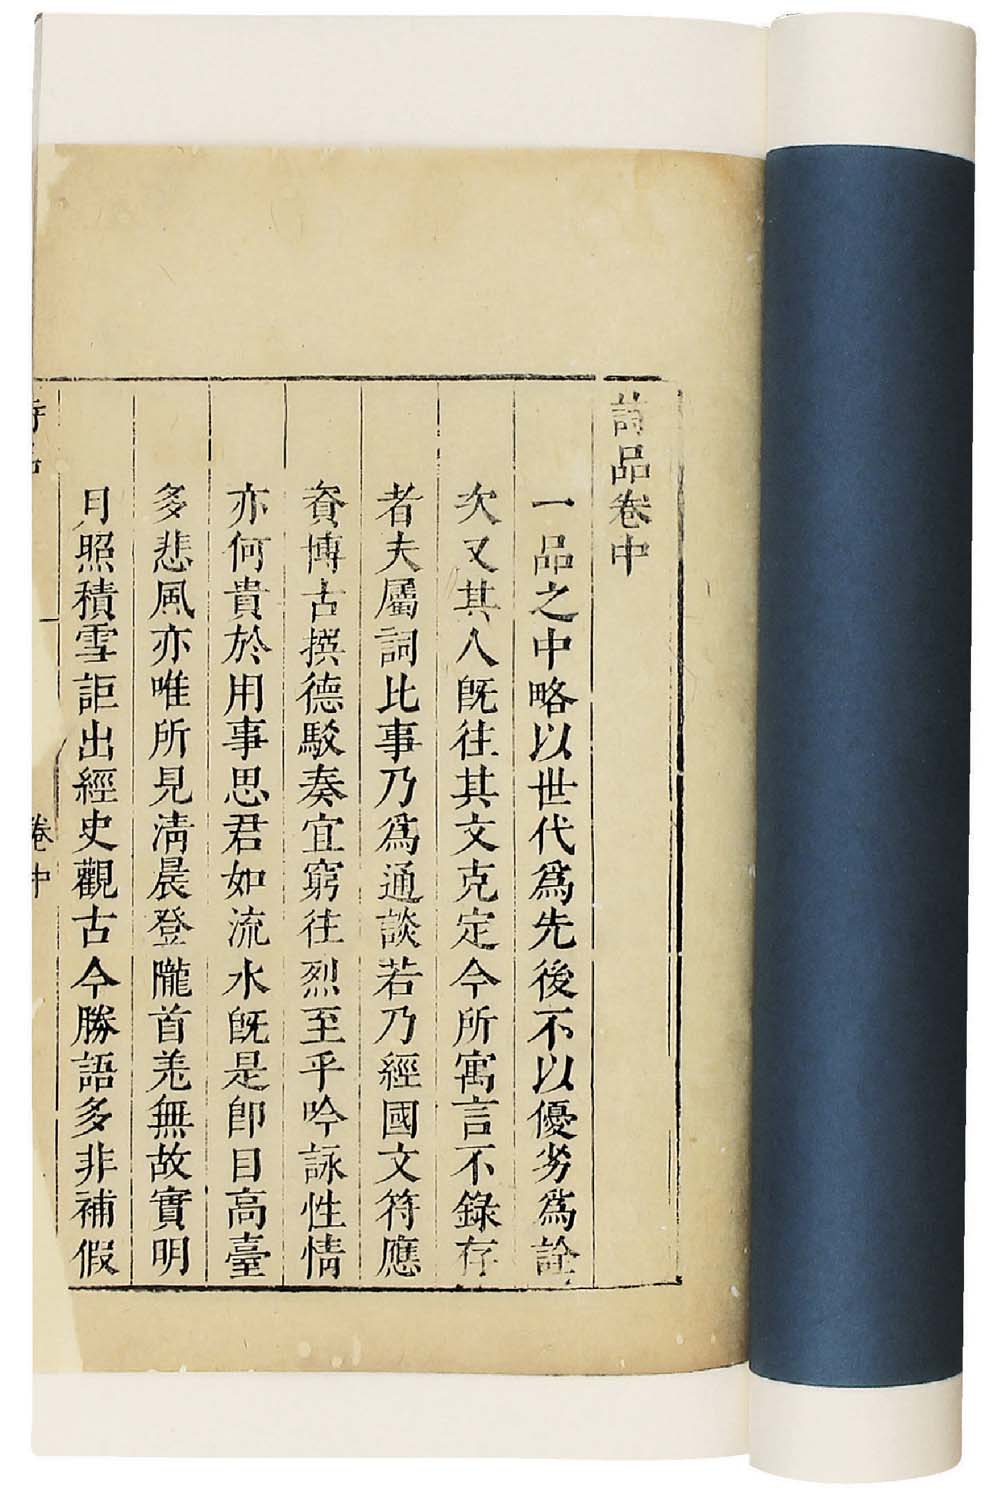 詩品卷中
一品之中略以世代爲先後不以優劣爲詮
次又其人旣往其文克定今所寓言不錄存
者夫屬詞比事乃爲通談若乃經國文符應
資博古撰德駁奏宜窮往烈至乎吟詠性情
亦何貴於用事思君如流水旣是卽目高臺
多悲風亦唯所見淸晨登隴首羌無故實明
月照積雪詎出經史觀古今勝語多非補假
卷中